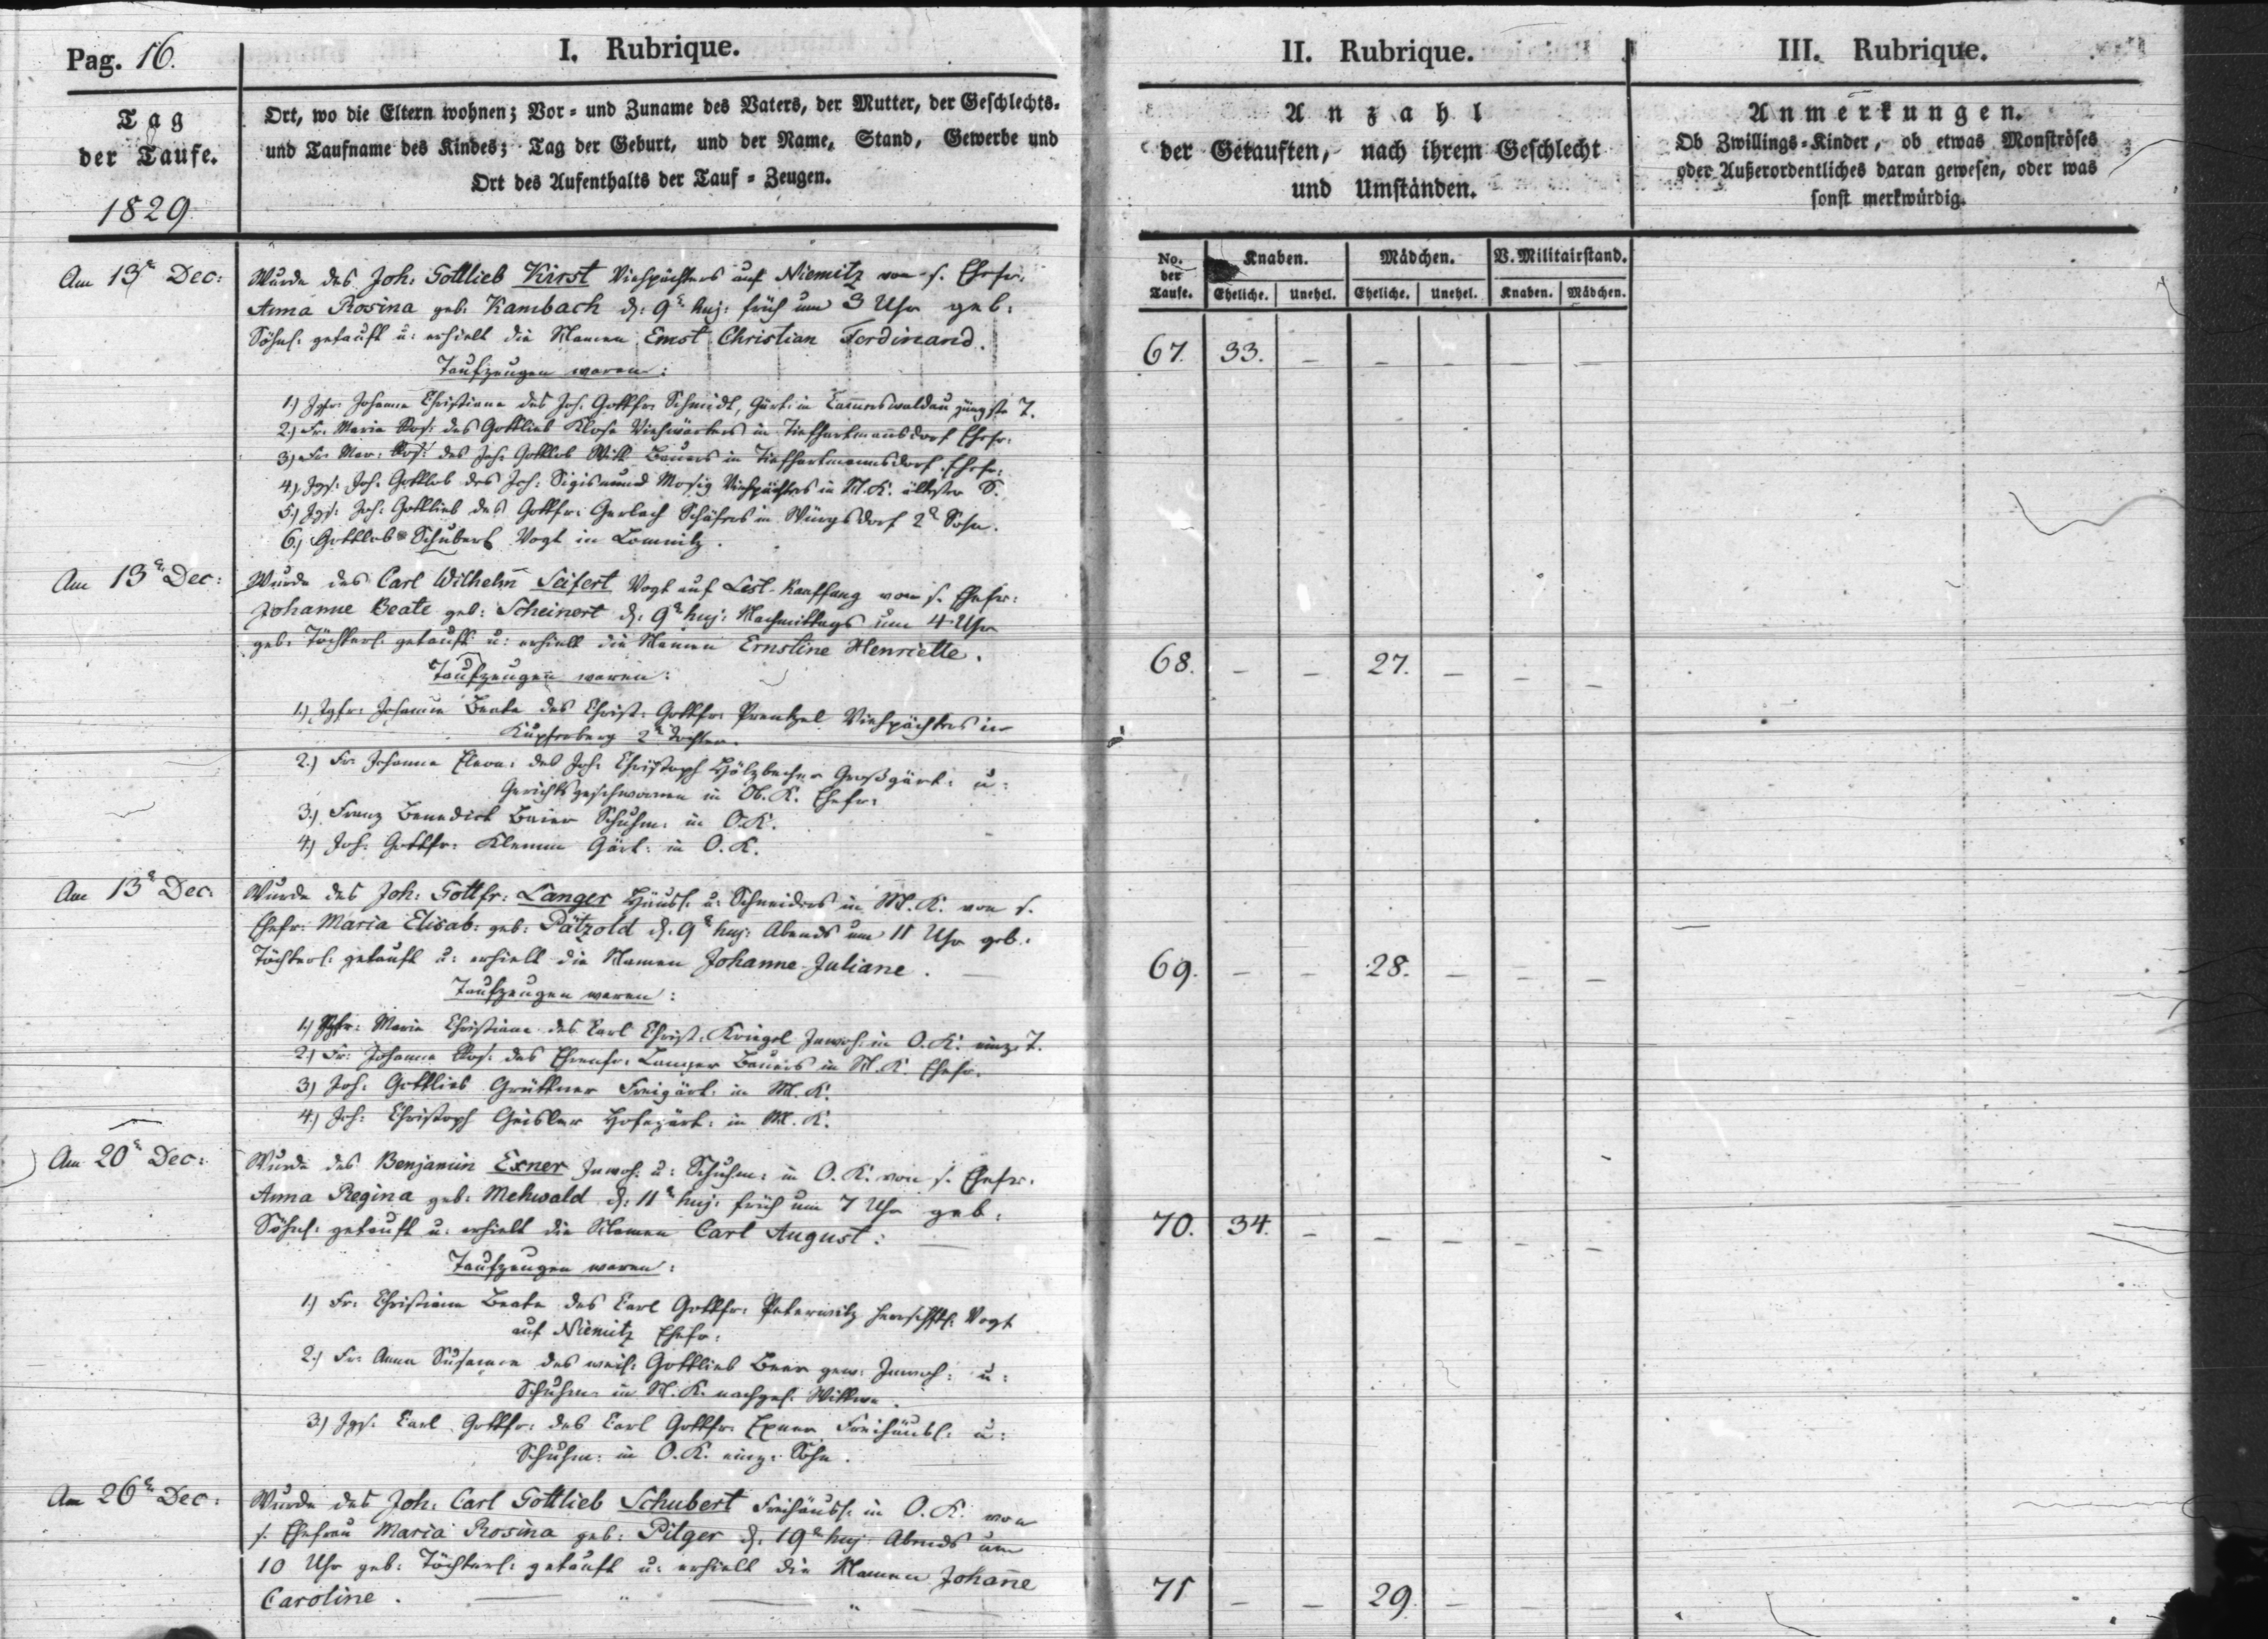 Pag. 16.
I. Rubrique.
Tag
der Taufe.
1829
Ort, wo die Eltern wohnen; Vor- und Zuname des Vaters, der Mutter, der Geschlechts-
und Taufname des Kindes; Tag der Geburt, und der Name, Stand, Gewerbe und
Ort des Aufenthalts der Tauf-Zeugen.
Am 13n Dec:
Wurde des Joh. Gottlieb Kirst Viehpächters auf Niemitz von s. Ehefr.
Anna Rosina geb: Kambach d: 9n huj: früh um 3 Uhr geb:
Söhnl. getauft u: erhielt die Namen Ernst Christian Ferdinand.
Taufzeugen waren:
1.) Jgfr: Johanne Christiane des Joh. Gottfr. Schmidt, Gärt: in jüngste T.
2.) Fr. Maria Ros: des Gottlieb Klose Viehwärters in Tiefhartmannsdorf Ehefr:
3.) Fr. Mar: Ros: des Joh. Gottlob Bauers in Tiefhartmannsdorf Ehefr:
4.) Jgs: Joh. Gottlob des Joh: Sigismund Mosig Viehpächters in M. K. ältester S.
5.) Jgs: Joh: Gottlieb des Gottfr: Gerlach Schäfers in Würgsdorf 2r Sohn.
6.) Gottlob Schubert Vogt in Lomnitz.
Am 13n Dec:
Wurde des Carl Wilhelm Seifert Vogt auf Lest-Kauffung von s. Ehefr:
Johanne Beate geb: Scheinert d: 9n huj: Nachmittags um 4 Uhr
geb: Töchterl. getauft u: erhielt die Namen Ernstine Henriette.
Taufzeugen waren:
1.) Jgfr: Johanne Beate des Christ: Gottfr: Prentzel Viehpächters in
Kupferberg 2te Tochter.
2.) Fr. Johanne Eleon: des Joh: Christoph Hölzbecher Großgärt: u:
Gerichtsgeschwornen in Ob. K. Ehefr:
3.) Franz Benedict Baier Schuhm: in O. K.
4.) Joh: Gottfr: Klemm Gärt: in O. K.
Am 13n Dec:
Wurde des Joh: Gottfr: Langer Häusl: u: Schneiders in M. K. von s.
Ehefr: Maria Elisab: geb: Pätzold d: 9n huj: Abends um 11 Uhr geb:
Töchterl: getauft u: erhielt die Namen Johanne Juliane.
Taufzeugen waren:
1.) Jgfr: Maria Christiane des Carl Christ: Kriegel Inwoh: in O. K. einz. T.
2.) Fr: Johanne Ros: des Ehrenfr: Langer Bauers in M. K. Ehefr:
3.) Joh: Gottlieb Grüttner Freigärt: in M. K.
4.) Joh: Christoph Geisler Hofegärt: in M. K.
Am 20n Dec:
Wurde des Benjamin Exner Inwoh: u: Schuhm: in O. K. von s. Ehefr:
Anna Regina geb: Mehwald d: 11n huj: früh um 7 Uhr geb:
Söhnl: getauft u: erhielt die Namen Carl August:
Taufzeugen waren:
1.) Fr: Christiane Beate des Carl Gottfr: Peterwitz herrschftl: Vogt
auf Niemitz Ehefr:
2.) Fr: Anna Susanne des weil: Gottlieb Beer gew: Inwoh: u:
Schuhm: in M. K. nachgel: Wittwe.
3.) Jgs: Carl Gottfr: des Carl Gottfr: Exner Freihäusl: u:
Schuhm: in O. K. einz: Sohn.
Am 26n Dec:
Wurde des Joh: Carl Gottlieb Schubert Freihäusl: in O. K. von
s. Ehefrau Maria Rosina geb: Pilger d: 19n huj: Abends um
10 Uhr geb: Töchterl: getauft u: erhielt die Namen Johañe
Caroline.
II. Rubrique.
Anzahl
der Getauften, nach ihrem Geschlecht
und Umständen.
No. der Taufe.
Knaben.
Mädchen.
V. Militairstand.
Eheliche. Unehel. Eheliche. Unehel. Knaben. Mädchen.
67. 33. – – – – –
68. – – 27. – – –
69. – – 28. – – –
70. 34. – – – – –
71 – – 29. – – –
III. Rubrique.
Anmerkungen.
Ob Zwillings-Kinder, ob etwas Monströses
oder Außerordentliches daran gewesen, oder was
sonst merkwürdig.